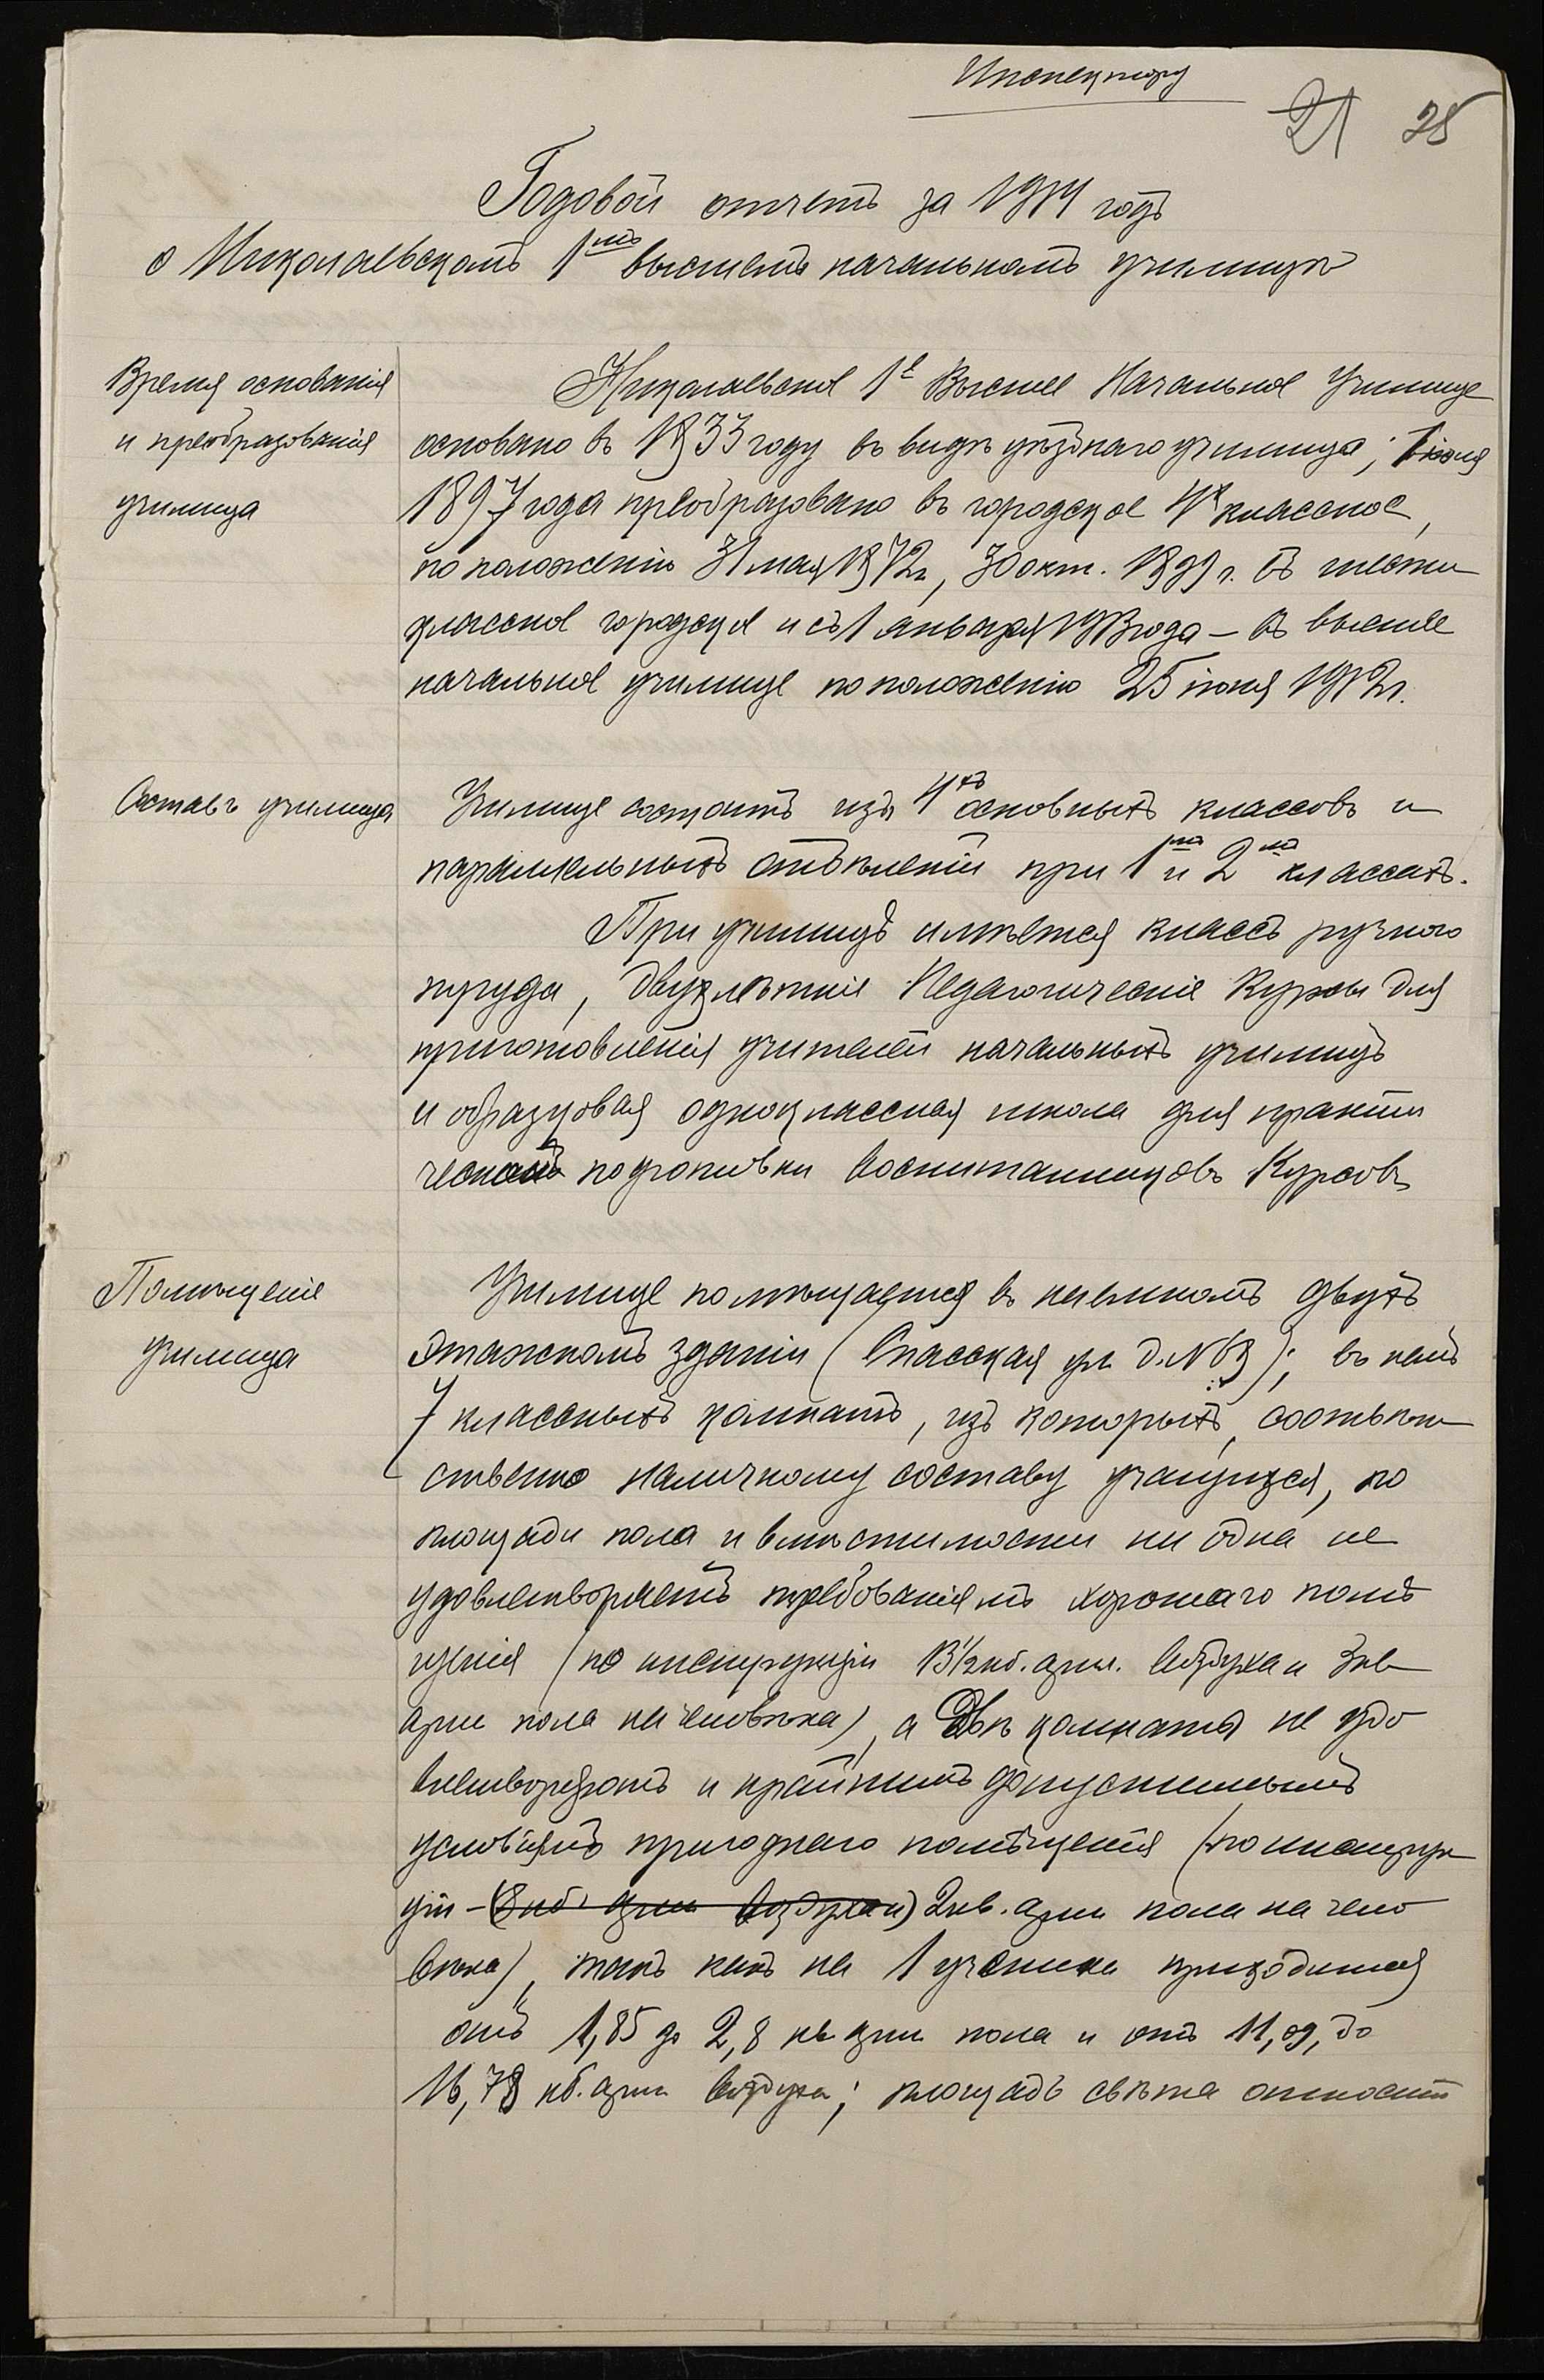 Инспектору
21 25
Годовой отчетъ за 1914 годъ
о Николаевскомъ 1мъ высшемъ начальномъ училищѣ
Время основанія
и преобразованія
училища
Николаевское 1е Высшее Начальное Училище
основано въ 1833 году въ видѣ уѣзднаго училища; 1 іюля
1897 года преобразовано въ городское 4х классное,
по положенію 31 мая 1872 г., 30 окт. 1899 г. въ шести
классное городское и съ 1 января 1913 года – въ высшее
начальное училище по положенію 25 іюня 1912 г.
Составъ училища
Училище состоитъ изъ 4хъ основныхъ классовъ и
параллельныхъ отдѣленій при 1мъ и 2мъ классахъ.
При училищѣ имѣется классъ ручного
труда, двухлѣтніе Педагогическіе Курсы для
приготовленія учителей начальныхъ училищъ
и образцовая одноклассная школа для практи
ческой подготовки воспитанниковъ Курсовъ
Помѣщеніе
училища
Училище помѣщается въ наемномъ двухъ
этажномъ зданіи (Спасская ул. д. №); въ немъ
7 классныхъ комнатъ, изъ которыхъ, соотвѣт
ственно наличному составу учащихся, по
площади пола и вмѣстимости ни одна не
удовлетворяетъ требованіямъ хорошаго помѣ
щенія (по инструкціи 13½ кб. арш. воздуха и 3 кв
арш пола на человѣка), а двѣ комнаты не удо
влетворяютъ и крайнимъ допустимымъ
условіямъ пригоднаго помѣщенія (по инструк
ціи – (8 кб. арш воздуха и) 2 кв. арш пола на чело
вѣка), такъ какъ на 1 ученика приходится
отъ 1,85 до 2,8 кв арш пола и отъ 11,09, до
16,78 кб. арш воздуха; площадь свѣта относит